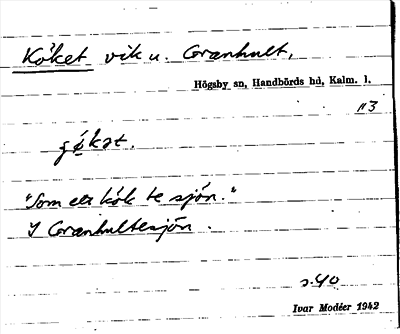 Köket vik u. Granhult.
Högsby sn, Handbörds hd, Kalm. l.
113
"Som ett kök te sjön."
I Granhultesjön.
s. 40
Ivar Modéer 1942